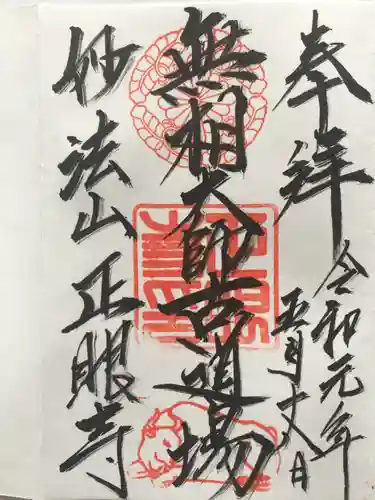 奉拝
令和元年
五月十八日
無相大師古道場
妙法山正眼寺